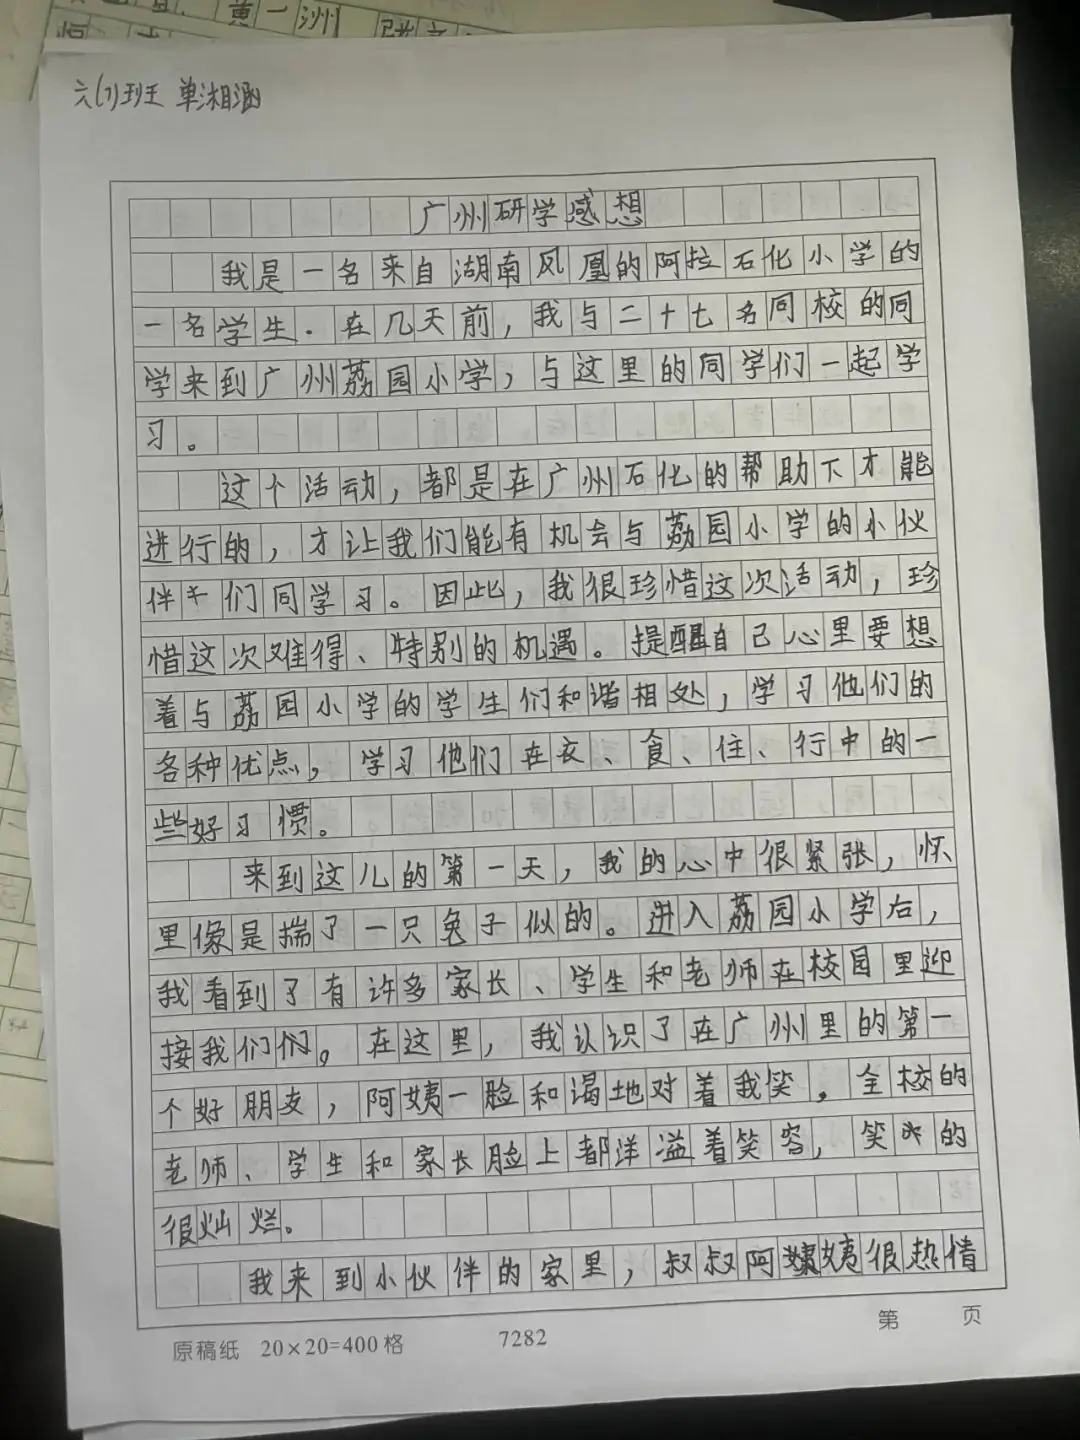 六(1)班 单湘涵
广州研学感想
我是一名来自湖南凤凰的阿拉石化小学的
一名学生．在几天前，我与二十七名同校的同
学来到广州荔园小学，与这里的同学们一起学
习。
这个活动，都是在广州石化的帮助下才能
进行的，才让我们能有机会与荔园小学的小伙
伴们同学习。因此，我很珍惜这次活动，珍
惜这次难得、特别的机遇。提醒自己心里要想
着与荔园小学的学生们和谐相处，学习他们的
各种优点，学习他们在衣、食、住、行中的一
些好习惯。
来到这儿的第一天，我的心中很紧张，怀
里像是揣了一只兔子似的。进入荔园小学后，
我看到了有许多家长、学生和老师在校园里迎
接我们们。在这里，我认识了在广州里的第一
个好朋友，阿姨一脸和谒地对着我笑。全校的
老师、学生和家长脸上都洋溢着笑容，笑的
很灿烂。
我来到小伙伴的家里，叔叔阿姨很热情
原稿纸 20×20=400格 7282 第 页